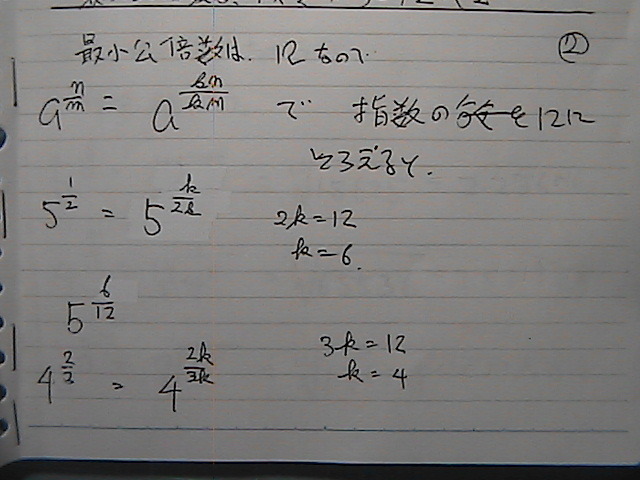 最小公倍数は、12なので ②
a^{\frac{n}{m}} = a^{\frac{kn}{km}} で 指数の を12に
そろえると、
5^{\frac{1}{2}} = 5^{\frac{k}{2k}} 2k=12
k=6.
5^{\frac{6}{12}}
3k=12
4^{\frac{2}{3}} = 4^{\frac{2k}{3k}} k=4